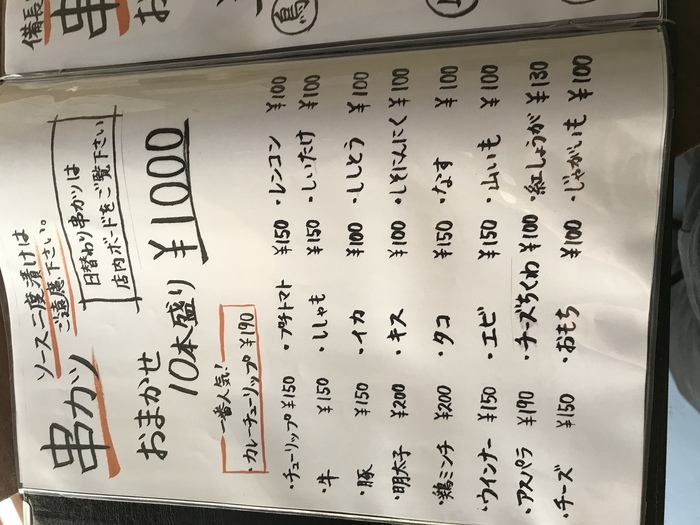 備長
串
お
鳥
串カツ
ソース二度漬けは
ご遠慮下さい。
日替わり串かつは
店内ボードをご覧下さい
おまかせ
10本盛り ¥1000
一番人気!
・カレーチューリップ ¥190
・チューリップ ¥150 ・プチトマト ¥150 ・レンコン ¥100
・牛 ¥150 ・ししゃも ¥150 ・しいたけ ¥100
・豚 ¥150 ・イカ ¥100 ・ししとう ¥100
・明太子 ¥200 ・キス ¥100 ・しそにんにく ¥100
・鶏ミンチ ¥200 ・タコ ¥150 ・なす ¥100
・ウインナー ¥150 ・エビ ¥150 ・山いも ¥100
・アスパラ ¥190 ・チーズちくわ ¥100 ・紅しょうが ¥130
・チーズ ¥150 ・おもち ¥100 ・じゃがいも ¥100